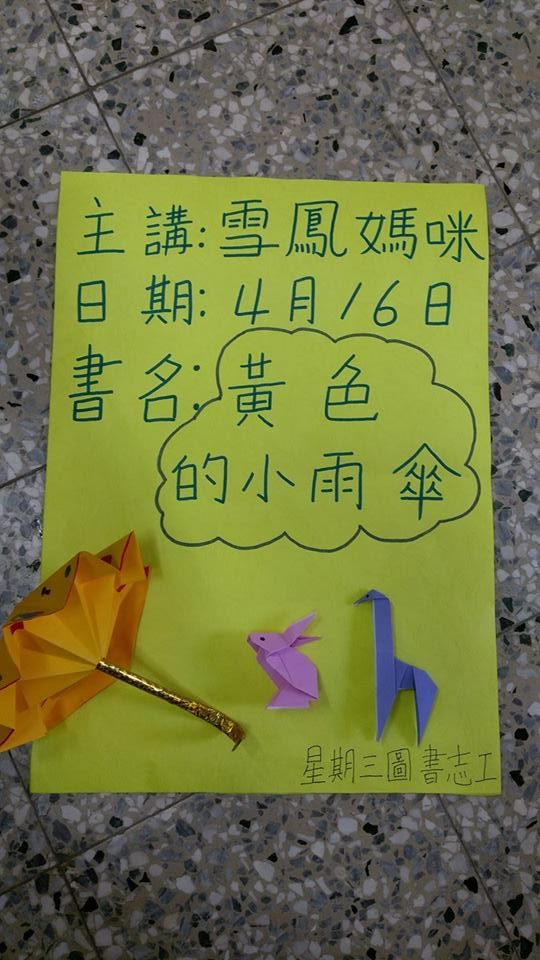 主講:雪鳳媽咪
日期:4月16日
書名:黃色
的小雨傘
星期三圖書志工